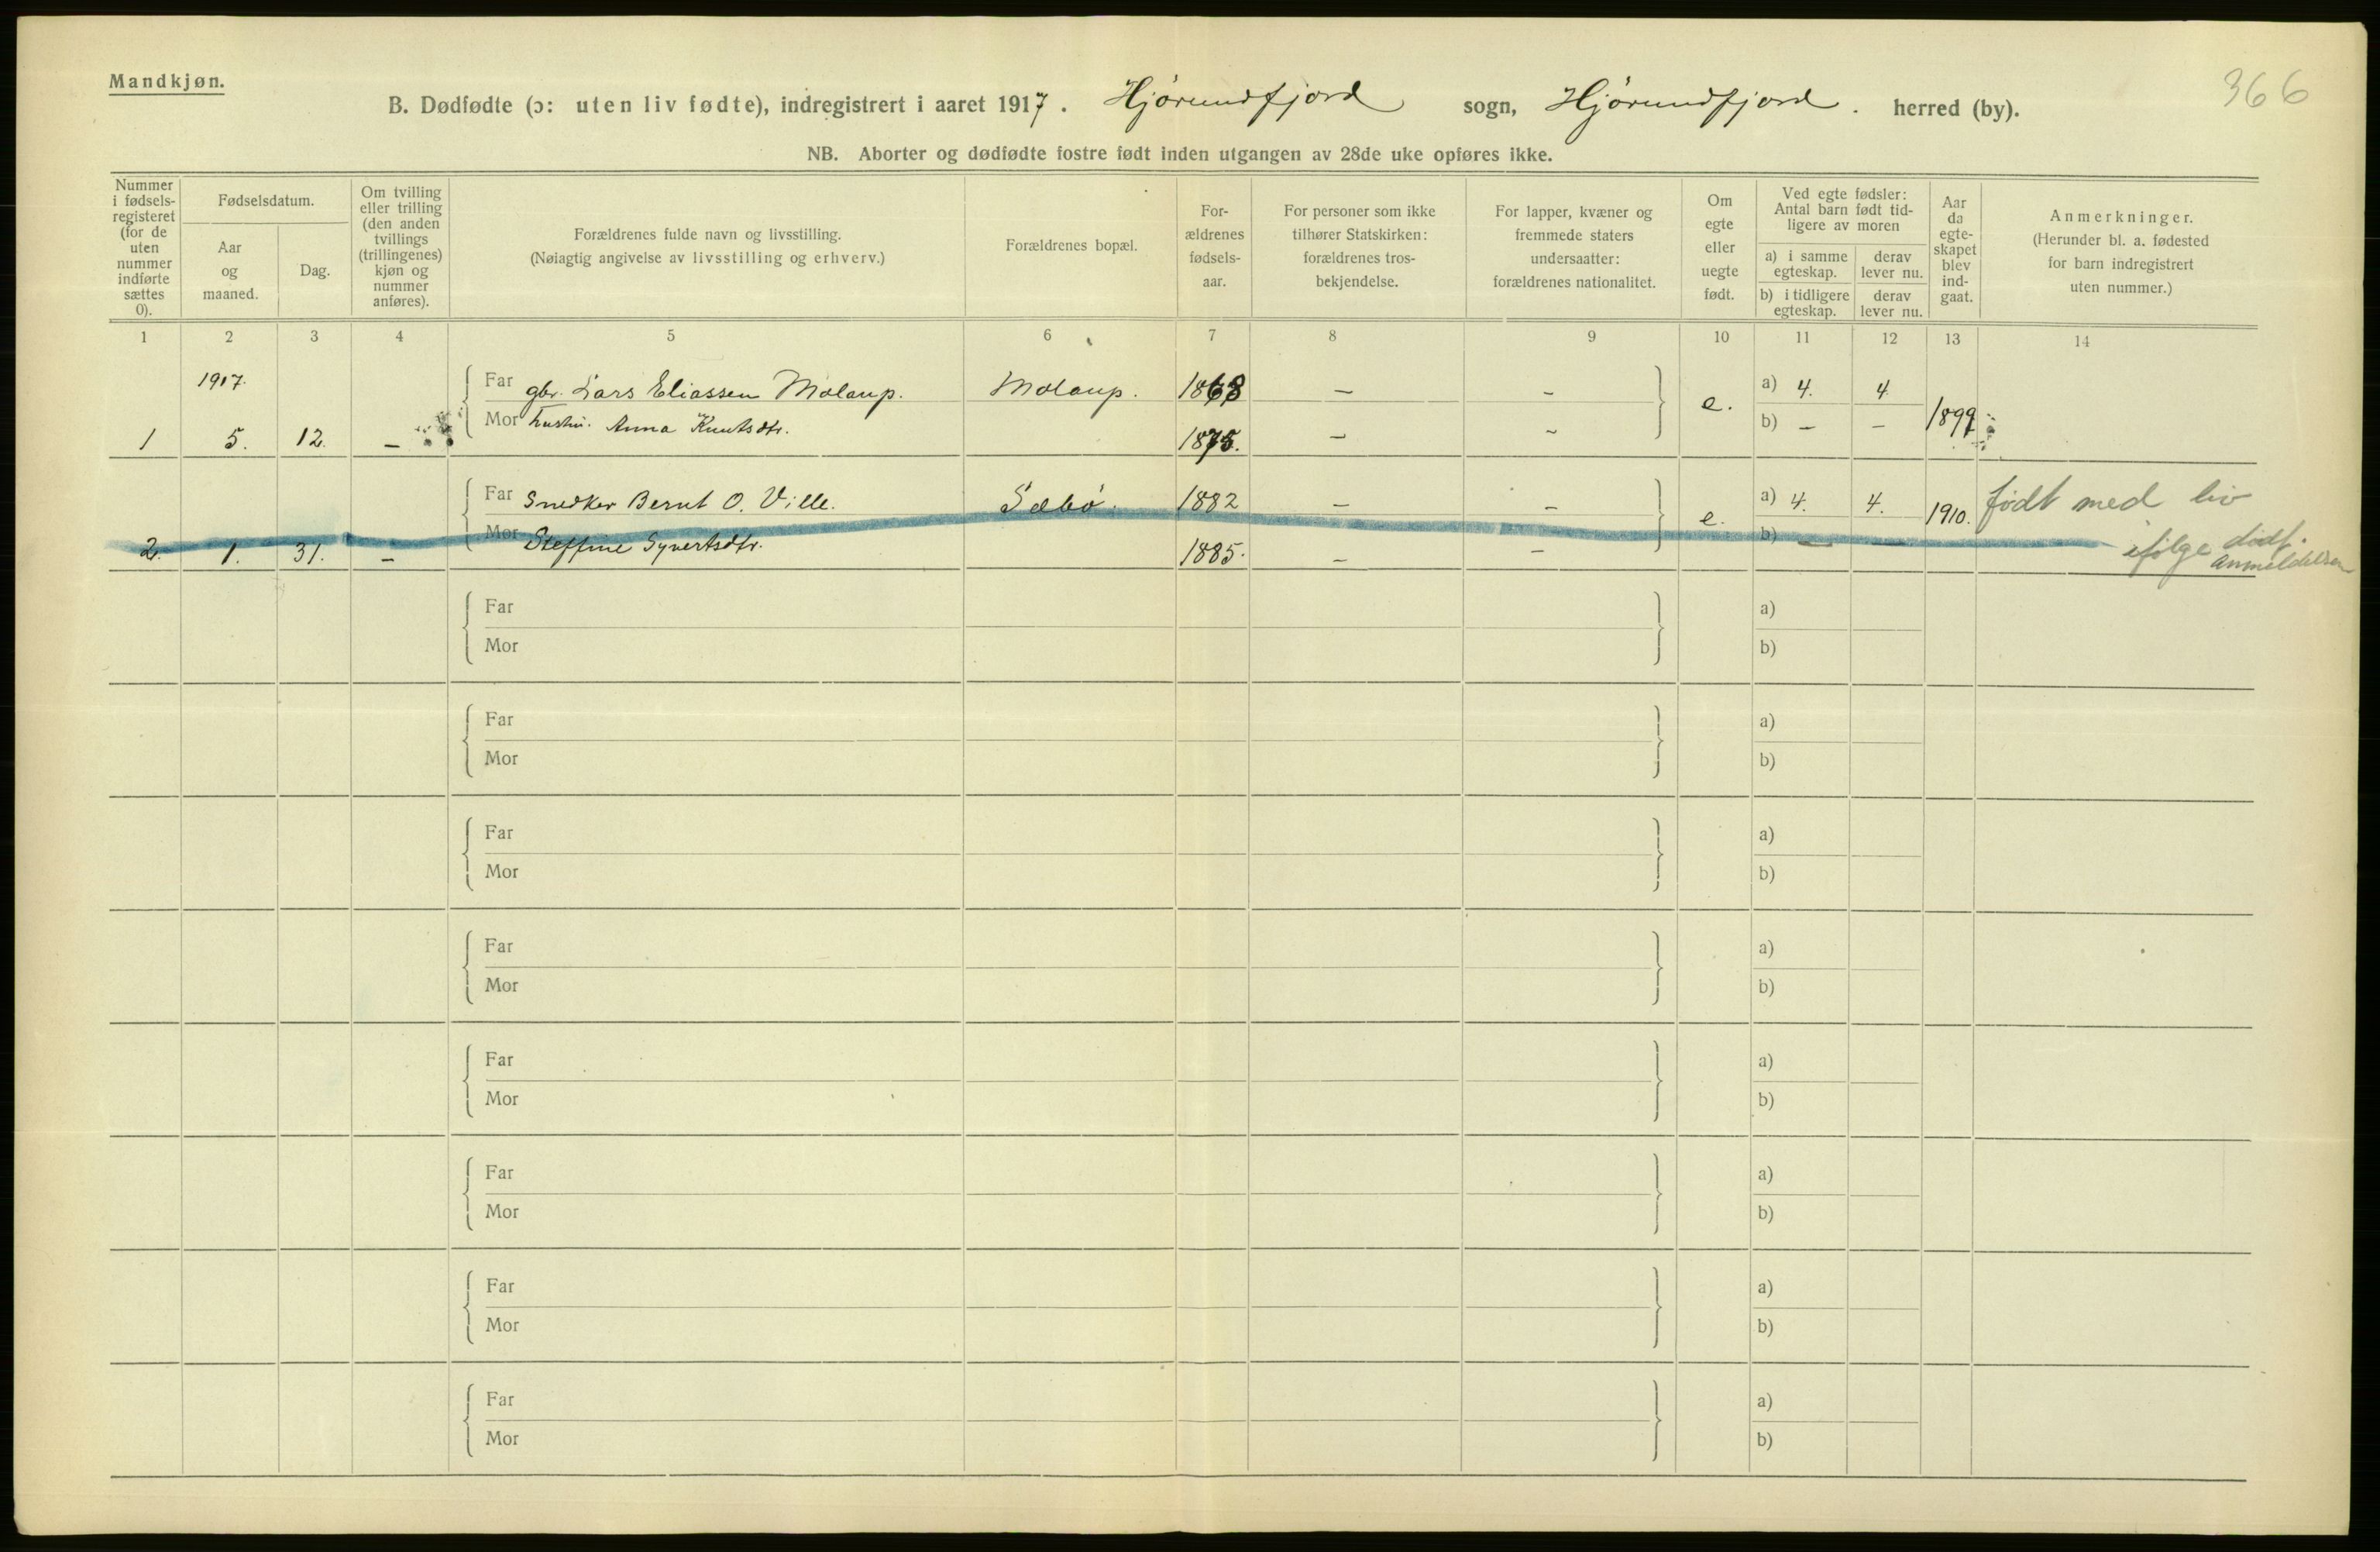 Mandkjøn.
366
B. Dødfødte (ɔ: uten liv fødte), indregistrert i aaret 1917. Hjørundfjord sogn, Hjørundfjord. herred (by).
NB. Aborter og dødfødte fostre født inden utgangen av 28de uke opføres ikke.
Nummer i fødsels-registeret (for de uten nummer indførte sættes 0).
Fødselsdatum.
Aar og maaned.
Dag.
Om tvilling eller trilling (den anden tvillings (trillingenes) kjøn og nummer anføres).
Forældrenes fulde navn og livsstilling.
(Nøiagtig angivelse av livsstilling og erhverv.)
Forældrenes bopæl.
For-ældrenes fødsels-aar.
For personer som ikke tilhører Statskirken: forældrenes tros-bekjendelse.
For lapper, kvæner og fremmede staters undersaatter: forældrenes nationalitet.
Om egte eller uegte født.
Ved egte fødsler: Antal barn født tid-ligere av moren
a) i samme egteskap.
derav lever nu.
b) i tidligere egteskap.
derav lever nu.
Aar da egte-skapet blev ind-gaat.
Anmerkninger.
(Herunder bl. a. fødested for barn indregistrert uten nummer.)
1 2 3 4 5 6 7 8 9 10 11 12 13 14
1917.
Far gbr. Lars Eliassen Molaup. Molaup. 1868 – – e. a) 4. 4
1 5. 12. – Mor Anna Knutsdtr. 1875. – – b) – – 1899
Far Snedker Bernt O. Ville. Sæbø. 1882 – – e. a) 4. 4. 1910. født med liv
2. 1. 31. – Mor Steffine Syvertsdtr. 1885. – – b) – – ifølge dødf. anmeldelsen
Far a)
Mor b)
Far a)
Mor b)
Far a)
Mor b)
Far a)
Mor b)
Far a)
Mor b)
Far a)
Mor b)
Far a)
Mor b)
Far a)
Mor b)